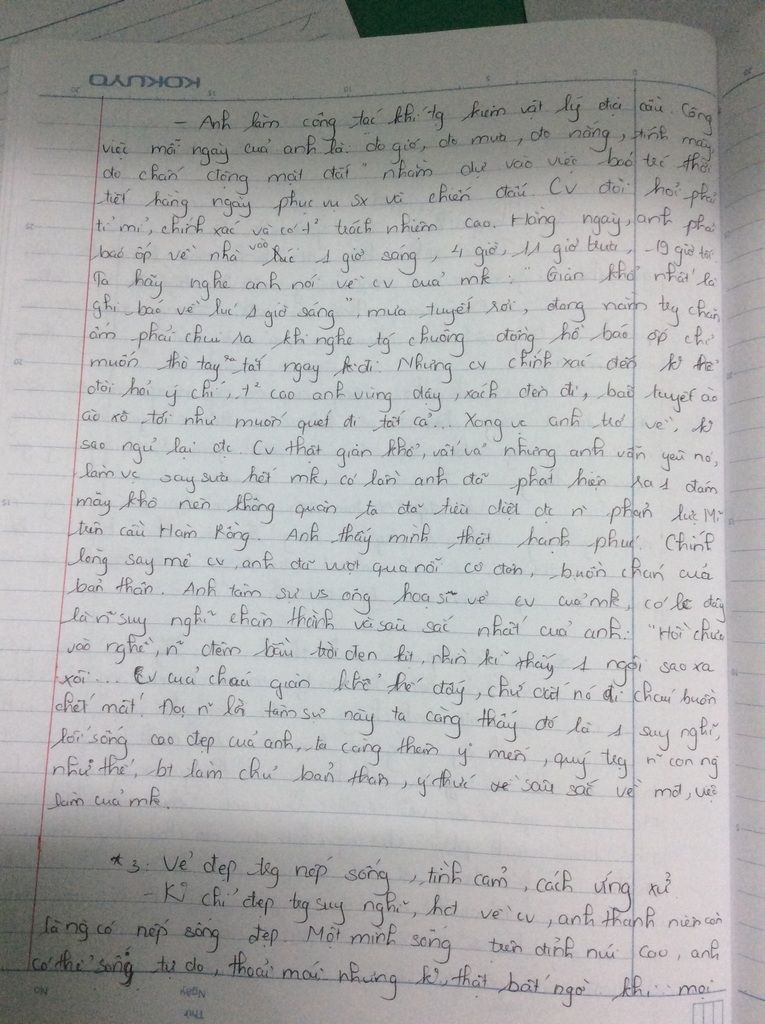 KOKUYO
- Anh làm công tác khí tg kiêm vật lý địa cầu. Công
việc mỗi ngày của anh là: đo gió, đo mưa, đo nắng, tính mây,
đo chấn động mặt đất" nhằm dự vào việc báo trc thời
tiết hàng ngày phục vụ sx và chiến đấu. Cv đòi hỏi phải
tỉ mỉ, chính xác và có t² trách nhiệm cao. Hàng ngày, anh phải
báo ốp về nhà vào lúc 1 giờ sáng, 4 giờ, 11 giờ trưa, 19 giờ tối.
Ta hãy nghe anh nói về cv của mk: "Gian khổ nhất là
ghi báo về lúc 1 giờ sáng", mưa tuyết rơi, đang nằm trg chăn
ấm phải chui ra khi nghe tg chuông đồng hồ báo ốp chỉ
muốn thò tay ra tắt ngay k đi. Nhưng cv chính xác đến k thể
đòi hỏi ý chí, t² cao anh vùng dậy, xách đèn đi, bão tuyết ào
ào xô tới như muốn quét đi tất cả... Xong vc anh trở về, k
sao ngủ lại đc. Cv thật gian khổ, vất vả nhưng anh vẫn yêu nó,
làm vc say sưa hết mk, có lần anh đã phát hiện ra 1 đám
mây khô nên không quân ta đã tiêu diệt đc n phản lực Mĩ
trên cầu Hàm Rồng. Anh thấy mình thật hạnh phúc. Chính
lòng say mê cv, anh đã vượt qua nỗi cô đơn, buồn chán của
bản thân. Anh tâm sự vs ông hoạ sĩ về cv của mk, có lẽ đây
là n~ suy nghĩ chân thành và sâu sắc nhất của anh: "Hồi chưa
vào nghề, n~ đêm bầu trời đen kịt, nhìn kĩ thấy 1 ngôi sao xa
xôi... Cv của cháu gian khổ thế đấy, chứ cất nó đi cháu buồn
chết mất! Đọc n~ lời tâm sự này ta càng thấy đó là 1 suy nghĩ,
lối sống cao đẹp của anh, ta càng thêm y mến, quý trg n~ con ng
như thế, bt làm chủ bản thân, ý thức sâu sắc về mđ, việc
làm của mk.
* 3: Vẻ đẹp trg nếp sống, tình cảm, cách ứng xử
- K chỉ đẹp trg suy nghĩ, hđ về cv, anh thanh niên còn
là ng có nếp sống đẹp. Một mình sống trên đỉnh núi cao, anh
có thể sống tự do, thoải mái nhưng k, thật bất ngờ khi mọi
No
Ngày
Thứ